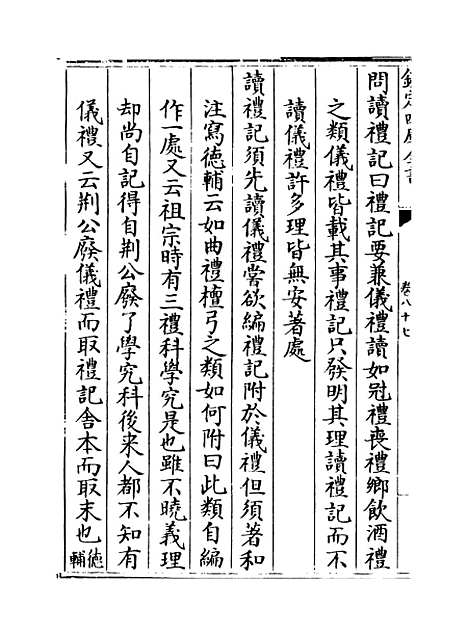 欽定四庫全書
卷八十七
問讀禮記曰禮記要兼儀禮讀如冠禮喪禮鄉飲酒禮
之類儀禮皆載其事禮記只發明其理讀禮記而不
讀儀禮許多理皆無安著處
讀禮記須先讀儀禮嘗欲編禮記附於儀禮但須著和
注寫徳輔云如曲禮檀弓之類如何附曰此類自編
作一處又云祖宗時有三禮科學究是也雖不曉義理
却尚自記得自荆公廢了學究科後来人都不知有
儀禮又云荆公廢儀禮而取禮記舍本而取末也徳輔